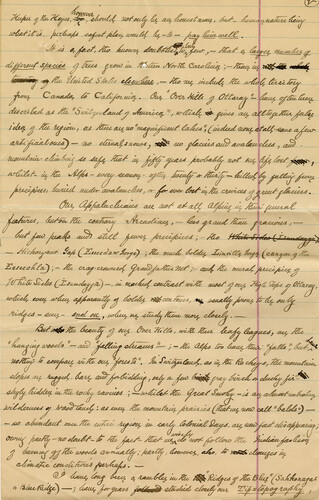 should not only be an honest man, but, human nature being
what it is, perhaps safest plan would be - to - pay him well.
It is a fact, tho' known doubtless to few, - that a larger number of
different species of trees grow in Western North Carolina - than in
the United States elsewhere, - tho' we include the whole territory
from Canada to California. Our "Over Hills of Ottaray" - have often been
described as the "Switzerland of America", which gives an altogether false
idea of the region, as there are no "magnificent lakes", (indeed none at all - save a few
artificial ones) - no eternal snows, no glaciers and avalanches, and
mountain climbing so safe that in fifty years probably not one life lost,
whilst in the Alps - every season - often twenty or thirty - killed by falling from
precipices, buried under avalanches, or for ever lost in the crevices of great glaciers.
Our Appalachians are not at all Alpine in their general
features, but on the contrary Arcadian, - less grand than gracious, -
but few peaks and still fewer precipices; - the
Hickorynut Gap the much bolder Linville Gorge (canyon of the
Eseeohla); - the crag-crowned Grandfather Mt; - and the mural precipice of
White Sides - in marked contrast with most of our High Tops of Ottaray,
which even when apparently of bolder contour, usually prove to be only
ridges - and no end, when we study them more closely. -
But the beauty of our Over Hills, with their leafy leagues, are the
"hanging woods" - and "falling streams"; - the Alps too have their "falls", but
nothing to compare with our forests. In Switzerland, as in the Rockies, the mountain
slopes are rugged, bare and forbidding, only a few gray birch or dusky fir
shyly hidden in the rocky crevices; - whilst the Great Smoky - is an almost unbroken
wilderness of woodland; - as even the mountain prairies (that we now call "balds") -
so abundant over the entire region in early Colonial Days, are now fast disappearing,
owing partly - no doubt - to the fact that we do not follow the Indian fashion
of burning off the woods annually; partly, however, to changes in
climatic conditions perhaps.
I have long been a rambler in the Ridges of the Blue
Blue Ridge) - ; have for years studied closely our Topography,